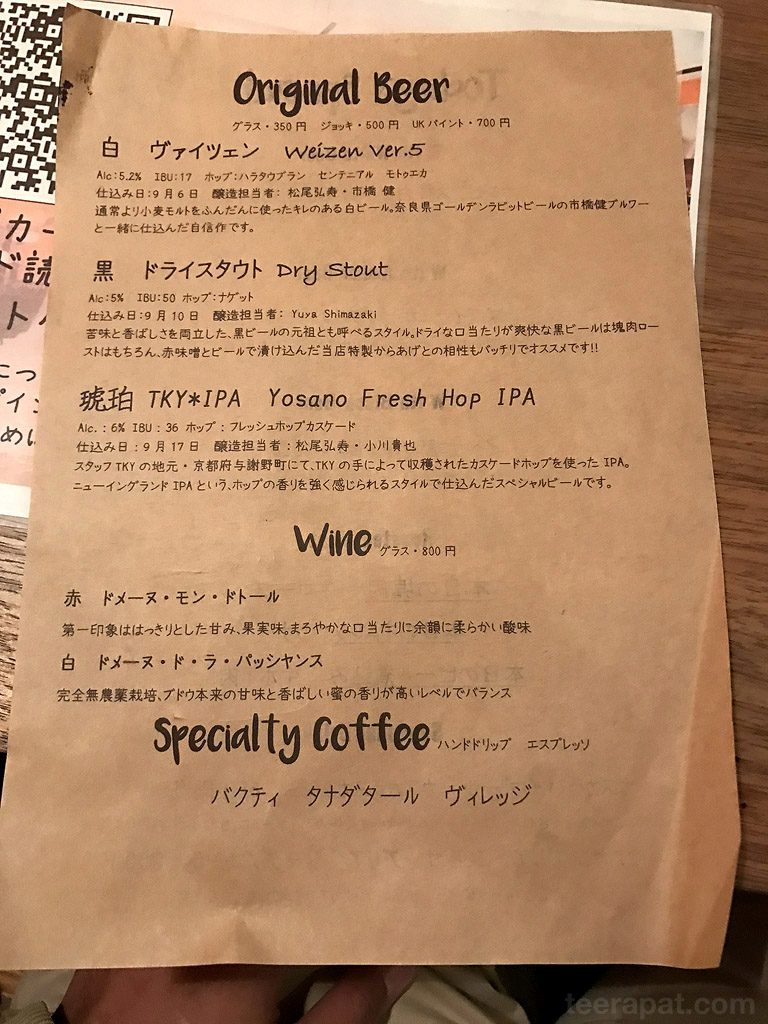 Original Beer
グラス・350円 ジョッキ・500円 UKパイント・700円
白 ヴァイツェン Weizen Ver.5
Alc:5.2% IBU:17 ホップ:ハラタウブラン センテニアル モトゥエカ
仕込み日:9月6日 醸造担当者: 松尾弘寿・市橋 健
通常より小麦モルトをふんだんに使ったキレのある白ビール。奈良県ゴールデンラビットビールの市橋健ブルワー
と一緒に仕込んだ自信作です。
黒 ドライスタウト Dry Stout
Alc:5% IBU:50 ホップ:ナゲット
仕込み日:9月10日 醸造担当者: Yuya Shimazaki
苦味と香ばしさを両立した、黒ビールの元祖とも呼べるスタイル。ドライな口当たりが爽快な黒ビールは塊肉ロー
ストはもちろん、赤味噌とビールで漬け込んだ当店特製からあげとの相性もバッチリでオススメです!!
琥珀 TKY*IPA Yosano Fresh Hop IPA
Alc.:6% IBU:36 ホップ:フレッシュホップカスケード
仕込み日:9月17日 醸造担当者:松尾弘寿・小川貴也
スタッフTKYの地元・京都府与謝野町にて、TKYの手によって収穫されたカスケードホップを使ったIPA。
ニューイングランドIPAという、ホップの香りを強く感じられるスタイルで仕込んだスペシャルビールです。
Wine グラス・800円
赤 ドメーヌ・モン・ドトール
第一印象ははっきりとした甘み、果実味。まろやかな口当たりに余韻に柔らかい酸味
白 ドメーヌ・ド・ラ・パッシヤンス
完全無農薬栽培、ブドウ本来の甘味と香ばしい蜜の香りが高いレベルでバランス
Specialty Coffee ハンドドリップ エスプレッソ
バクティ タナダタール ヴィレッジ
teerapat.com